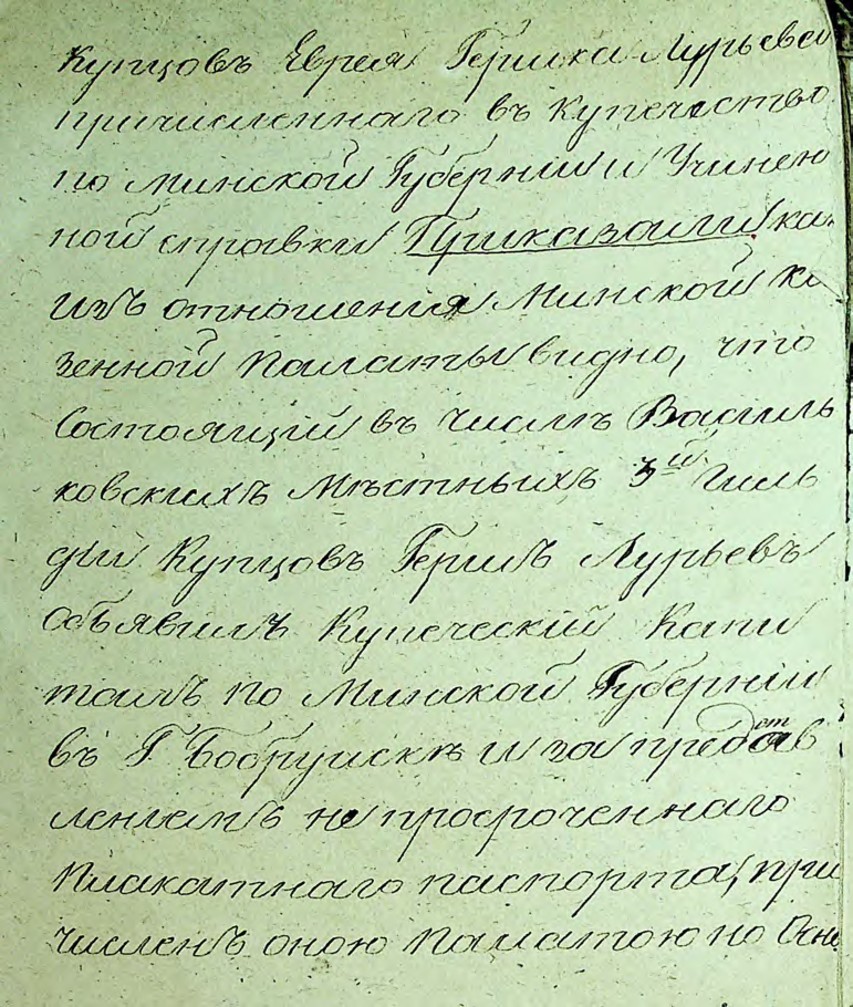 Купцовъ Еврея Гершка Лурьева
причисленнаго въ купечество
по Минской Губерніи и Учинен
ной справки Приказали ка
изъ отношения Минской ка
зенной Палаты видно, что
Состоящій въ числѣ Василь
ковскихъ Мѣстныхъ 3й Гиль
діи Купцовъ Гершъ Лурьевъ
объявилъ Купеческій Капи
талъ по Минской Губерніи
въ Г Бобруискѣ и за представ
лениемъ не просроченнаго
Плакатнаго паспорта, при
численъ оною Палатою но Осно